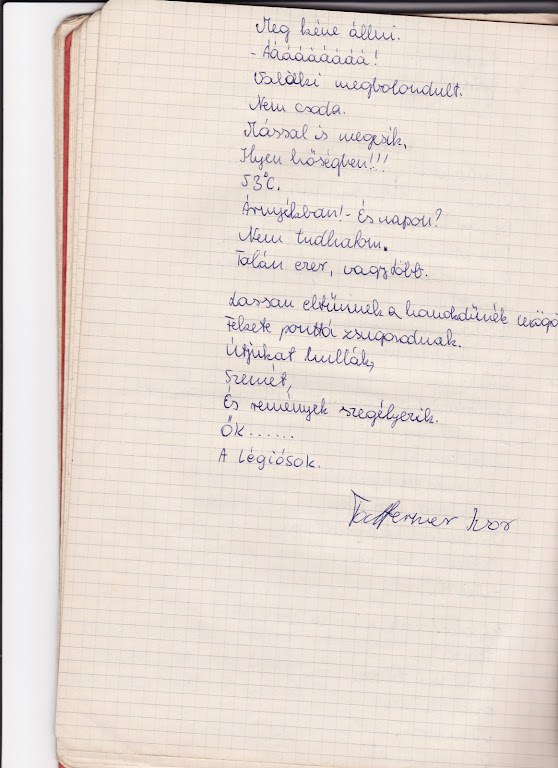 Meg kéne állni.
- Ááááááááá!
Valaki megbolondult.
Nem csoda.
Mással is megesik,
Ilyen hőségben!!!
53°C.
Árnyékban! - És napon?
Nem tudhatom.
Talán ezer, vagy több.
Lassan eltünnek a homokdűnék
Fekete ponttá zsugorodnak.
Útjukat hullák,
Szemét,
És remények szegélyezik.
Ők......
A légiósok.
Ivor